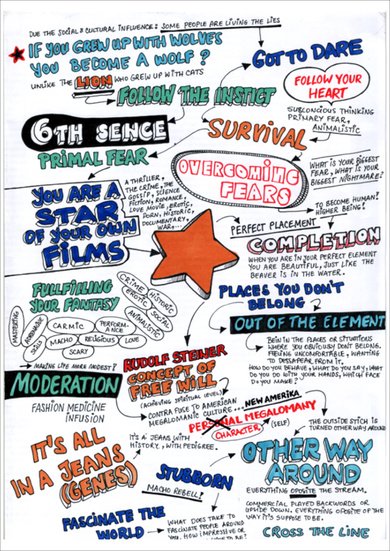 DUE THE SOCIAL & CULTURAL INFLUENCE: SOME PEOPLE ARE LIVING THE LIES
IF YOU GREW UP WITH WOLVES
YOU BECOME A WOLF?
UNLIKE THE LION WHO GREW UP WITH CATS
GOT TO DARE
FOLLOW THE INSTICT
FOLLOW YOUR
HEART
SUBCONCIOUS THINKING
PRIMARY FEAR,
ANIMALISTIC
6TH SENCE
PRIMAL FEAR
SURVIVAL
OVERCOMING
FEARS
WHAT IS YOUR BIGGEST
FEAR, WHAT IS YOUR
BIGGEST NIGHTMARE?
TO BECOME HUMAN?
HIGHER BEING?
YOU ARE A
STAR
OF YOUR OWN
FILMS
A THRILLER,
THE CRIME, THE
GOSIP, SIENCE
FICTION, ROMANCE,
LOVE MOVIE, EROTIC,
PORN, HISTORIC,
DOCUMENTARY,
WAR...
PERFECT PLACEMENT
COMPLETION
WHEN YOU ARE IN YOUR PERFECT ELEMENT
YOU ARE BEAUTIFUL, JUST LIKE THE
BEAVER IS IN THE WATER.
FULLFILLING
YOUR FANTASY
CRIME HISTORIC
EROTIC SOCIAL
ANIMALISTIC
MASTERING
SKILLS
CARMIC
PERFORM-
ANCE
MACHO
RELIGIOUS
LOVE
SCARY
PLACES YOU DON'T
BELONG
OUT OF THE ELEMENT
BEIN IN THE PLACES OR SITUATIONS
WHERE YOU OBVIOUSLY DON'T BELONG.
FEELING UNCOMFORTABLE, WANTING
TO DISSAPEAR, FROM IT.
HOW DO YOU BEHAVE, WHAT DO YOU SAY, WHAT
DO YOU DO WITH YOUR HANDS, WHICH FACE
DO YOU MAKE?
MAKING LIFE MORE MODEST?
MODERATION
FASHION MEDICINE
INFUSION
RUDOLF STEINER
CONCEPT OF
FREE WILL
(ACHIEVING SPIRITUAL LEVEL)
CONTRA FUCK TO AMERICAN
MEGALOMANIC CULTURE...
NEW AMERIKA
MEGALOMANY
CHARACTER
(SELF)
IT'S A JEANS WITH
HISTORY, WITH PEDIGREE.
THE OUTSIDE STICH IS
TURNED OTHER WAY AROUND
IT'S ALL
IN A JEANS
(GENES)
STUBBORN
MACHO REBELL?
OTHER WAY
AROUND
EVERYTHING OPOSITE THE STREAM.
COMMERCIAL PLAYED BACKWORDS OR
UPSTAY DOWN. EVERYTHING OPOSITE OF THE
WAY IT'S SUPPOSE TO BE.
FASCINATE THE
WORLD
WHAT DOES TAKE TO
FASCINATE PEOPLE AROUND
YOU. HOW IMPRESSIVE OR
CROSS THE LINE